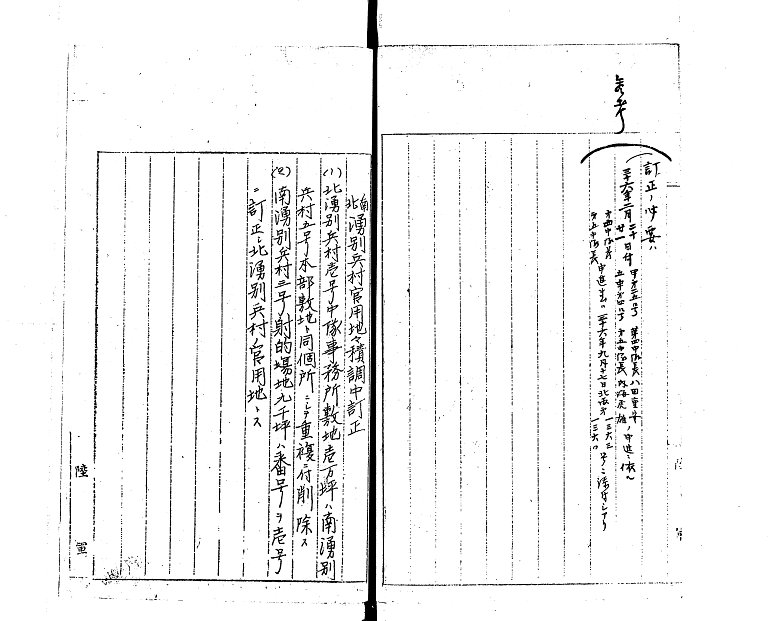 参考
訂正ノ必要ハ
三十六年二月二十日付甲第三五号第四中隊長八田重
廿一 五中第四号第五中隊長内海 雄ノ申進ニ依ル
第四中隊長
第五中隊長申進書ハ三十六年九月十七日北 第一三六三号ニ添付シアリ
一三六
南
北湧別兵村官用地々積調中訂正
(1)北湧別兵村壱号中隊事務所敷地壱万坪ハ南湧別
兵村五号本部敷地ト同個所ニシテ重複ニ付削除ス
(2)南湧別兵村三号射的場地九千坪ハ番号ヲ壱号
ニ訂正シ北湧別兵村ノ官用地トス
陸軍